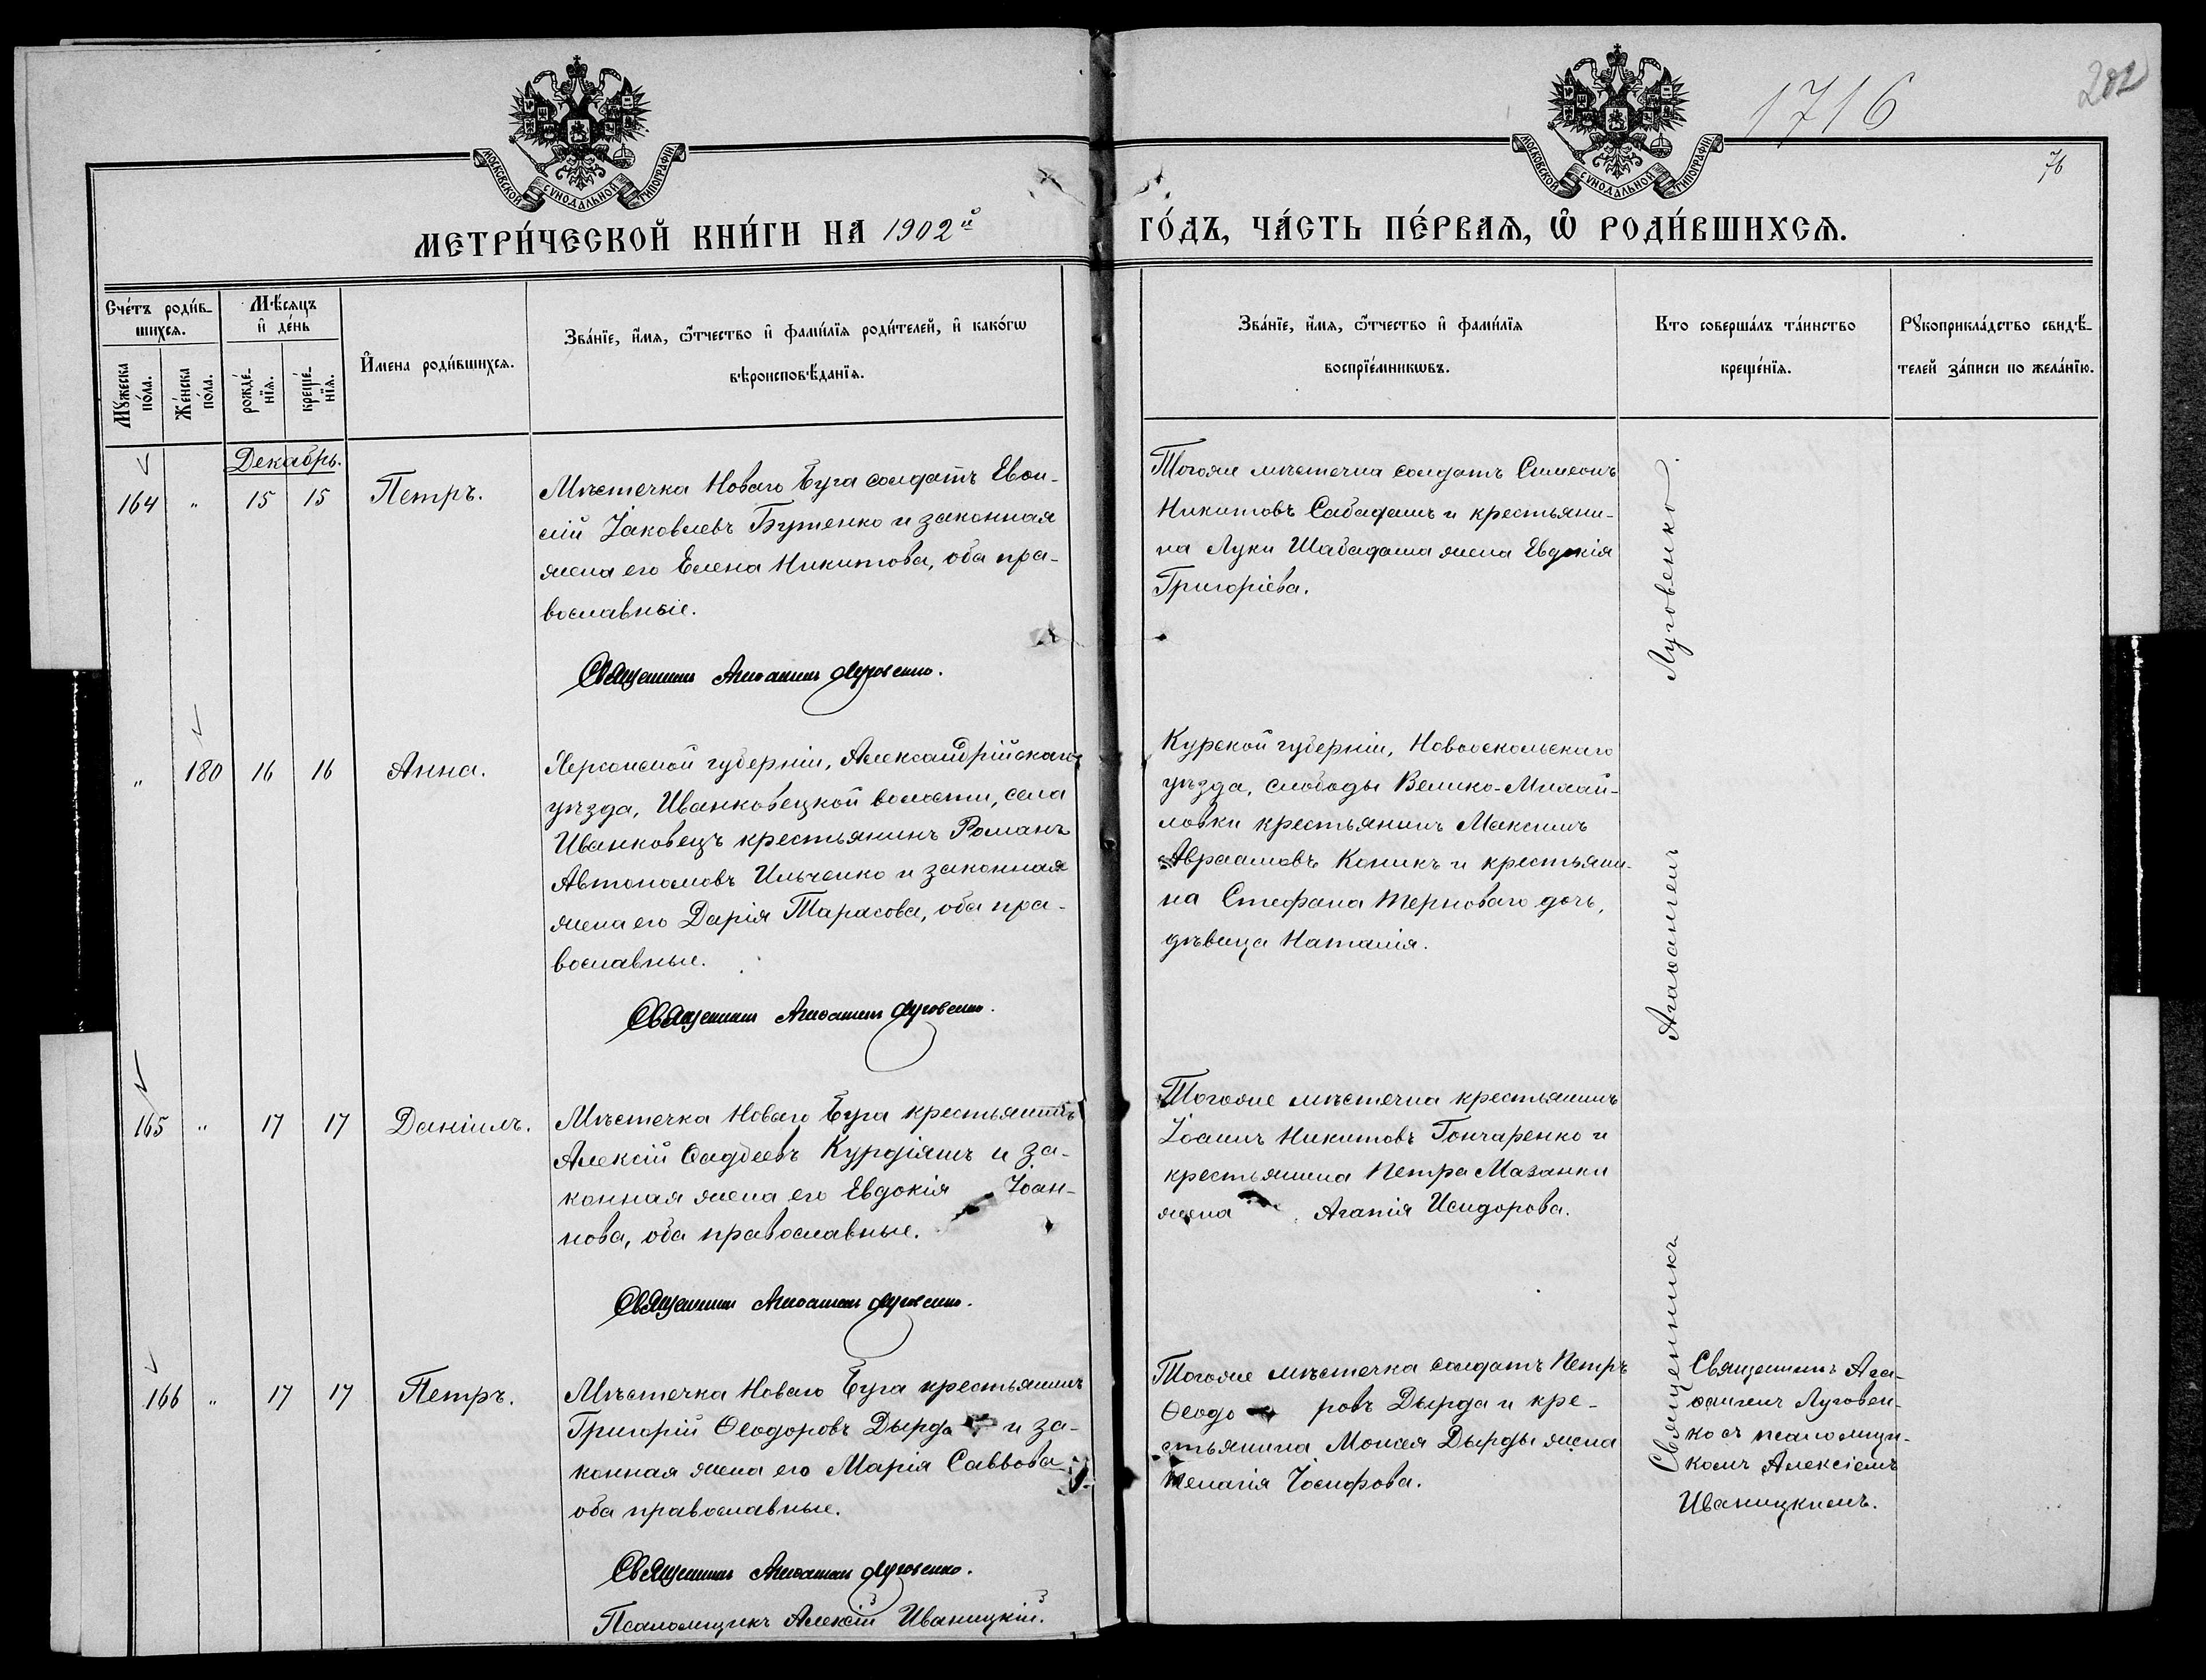 1716
202
76
МОСКОВСКОЙ СѴНОДАЛЬНОЙ ТИПОГРАФІИ
МОСКОВСКОЙ СѴНОДАЛЬНОЙ ТИПОГРАФІИ
МЕТРИ́ЧЕСКОЙ КНИ́ГИ НА 1902й ГО́ДЪ, ЧА́СТЬ ПЕ́РВАѦ, Ѡ҆ РОДИ́ВШИХСѦ.
Сче́тъ роди́вшихсѧ.
Мѣ́сѧцъ и҆ де́нь
Мꙋ́жеска по́ла.
Же́нска по́ла.
рожде́нїѧ.
креще́нїѧ.
И҆мена роди́вшихсѧ.
Зва́нїе, и҆́мѧ, ѻ҆́тчество и҆ фами́лїѧ роди́телей, и҆ како́гѡ
вѣроисповѣ́данїѧ.
Зва́нїе, и҆́мѧ, ѻ҆́тчество и҆ фами́лїѧ
воспрїе́мникѡвъ.
Кто соверша́лъ та́инство
креще́нїѧ.
Рꙋкоприкла́дство свидѣ́-
телей за́писи по жела́нїю.
Декабрь.
164 " 15 15 Петръ.
Мѣстечка Новаго Буга солдатъ Евои-
мій Іаковлевъ Бутенко и законная
жена его Елена Никитова, оба пра-
вославные.
Священникъ Агаѳангелъ Луговенко.
Тогоже мѣстечка солдатъ Симеонъ
Никитовъ Сабадашъ и крестьяни-
на Луки Шабадаша жена Евдокія
Григоріева.
" 180 16 16 Анна.
Херсонской губерніи, Александрійскаго
уѣзда, Иванковецкой волости, села
Иванковецъ крестьянинъ Романъ
Автономовъ Ильченко и законная
жена его Дарія Тарасова, оба пра-
вославные.
Священникъ Агаѳангелъ Луговенко.
Курской губерніи, Новооскольскаго
уѣзда, слободы Велико-Михай-
ловки крестьянинъ Максимъ
Авраамовъ Коникъ и крестьяни-
на Стефана Терноваго дочь,
дѣвица Наталія.
165 " 17 17 Даніилъ.
Мѣстечка Новаго Буга крестьянинъ
Алексій Ѳаддеевъ Курдіянъ и за-
конная жена его Евдокія Іоан-
нова, оба православные.
Священникъ Агаѳангелъ Луговенко.
Тогоже мѣстечка крестьянинъ
Іоаннъ Никитовъ Гончаренко и
крестьянина Петра Мазанки
жена Агапія Исидорова.
166 " 17 17 Петръ.
Мѣстечка Новаго Буга крестьянинъ
Григорій Ѳеодоровъ Дырда и за-
конная жена его Марія Саввова
оба православные.
Священникъ Агаѳангелъ Луговенко.
Псаломщикъ Алексій Иваницкій.
Тогоже мѣстечка солдатъ Петръ
Ѳеодоровъ Дырда и кре-
стьянина Моисея Дырды жена
Пелагія Іосифова.
Священникъ Агаѳангелъ Луговенко.
Священникъ Ага-
ѳангелъ Луговен-
ко съ псаломщи-
комъ Алексіемъ
Иваницкимъ.